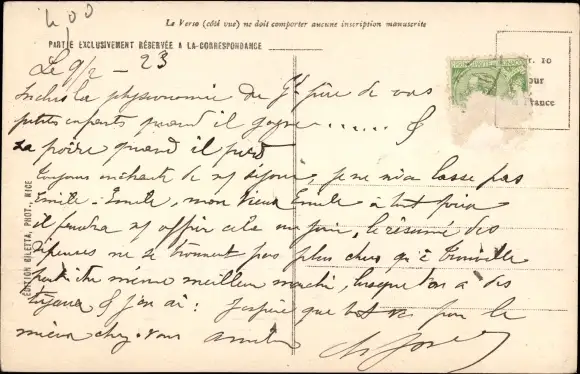 4,00
Le Verso (côté vue) ne doit comporter aucune inscription manuscrite
PARTIE EXCLUSIVEMENT RÉSERVÉE A LA CORRESPONDANCE
Le 9/2 - 23
Inclus la physionomie du Gd père de vos
petits enfants quand il gagne ......
La poire quand il perd
Toujours enchanté de séjour, je ne m'en lasse pas
Emile - Emile, mon vieux Emile à tout prix
il faudra offrir cela un jour, le résumé des
dépenses ne se trouvent pas plus cher qu'à Trouville
peut être même meilleur marché, lorsque l'on a des
tuyaux j'en ai : J'espère que tout va pour le
mieux chez vous
r. 10
our
rance
ÉDITION GILETTA, PHOT., NICE